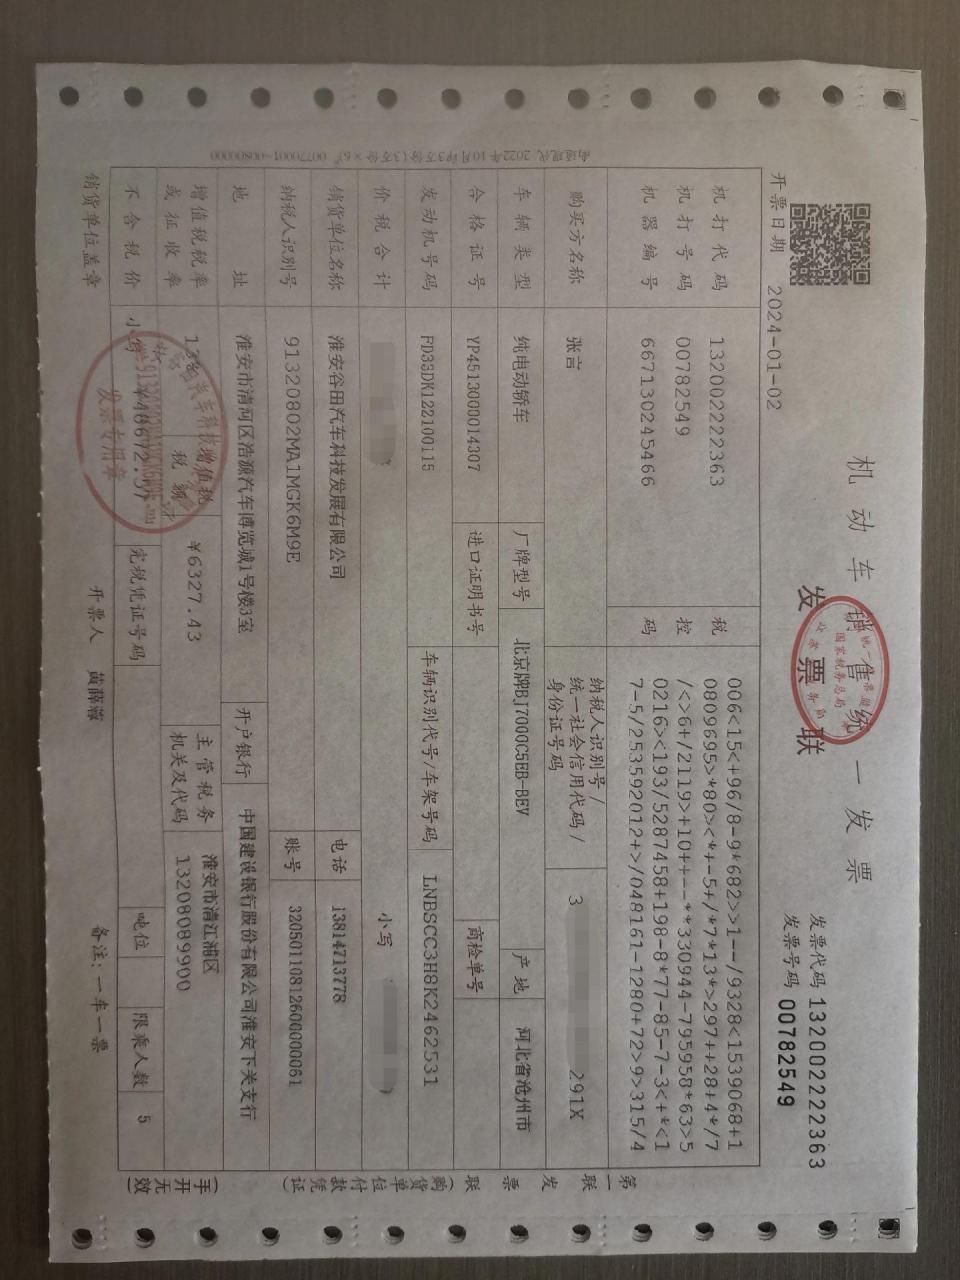 机动车销售统一发票
发票联
发票代码 132002222363
发票号码 00782549
开票日期 2024-01-02
机打代码 132002222363
机打号码 00782549
机器编号 667130245466
税控码
006<15<+96/8-9*682>>1--/9328<1539068+1
0809695>*80><*+-5+/*7*13*>297++28+4*/7
/<>6+/2119>+10++--**330944-795958*63>5
0216><193/5287458+198-8*77-85-7-3<+*<1
7-5/253592012+>/048161-1280+72>9>315/4
购买方名称 张言
纳税人识别号/
统一社会信用代码/
身份证号码
3 291X
车辆类型 纯电动轿车 厂牌型号 北京牌BJ7000C5EB-BEV 产地 河北省沧州市
合格证号 YP4513000014307 进口证明书号 商检单号
发动机号码 FD33DK122100115 车辆识别代号/车架号码 LNBSCC3H8K2462531
价税合计 小写
销货单位名称 淮安谷田汽车科技发展有限公司 电话 13814713778
纳税人识别号 91320802MA1MGK6M9E 账号 32050110812600000061
地址 淮安市清河区浩源汽车博览城1号楼3室 开户银行 中国建设银行股份有限公司淮安下关支行
增值税税率或征收率 13% 增值税税额 ¥6327.43 主管税务机关及代码 淮安市清江浦区 13208089900
不含税价 小写 完税凭证号码 吨位 限乘人数 5
销货单位盖章 开票人 黄薛蓉 备注:一车一票
第一联 发票联(购货单位付款凭证)
(手开无效)
南通现代 2022年10月印3万份(3万份×6) 00770001-00800000
国家税务总局
发票专用章